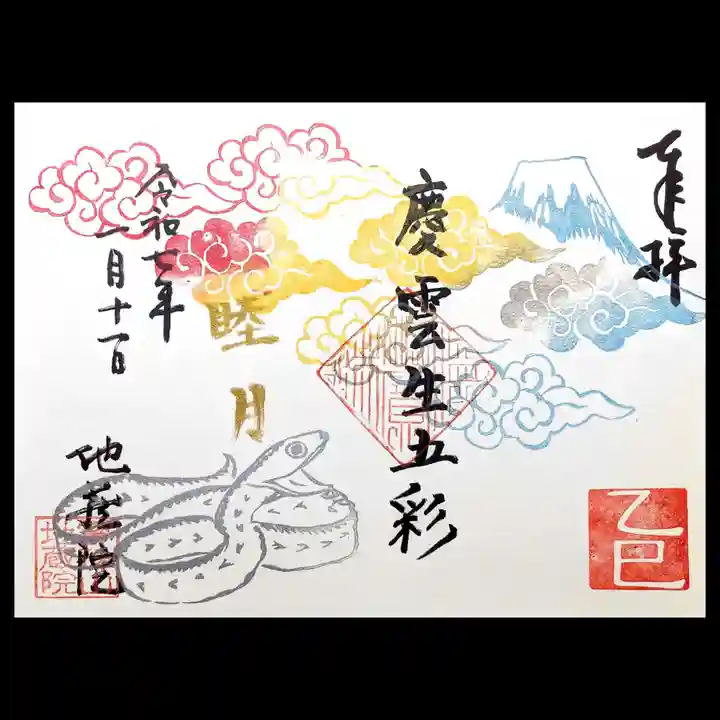 奉拝
慶雲生五彩
睦月
令和七年
一月十一日
地蔵院
地蔵院
乙巳